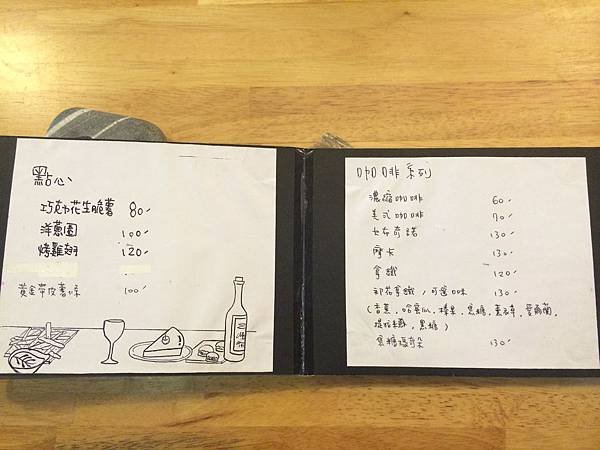 點心
巧克力花生脆薯 80
洋蔥圈 100
烤雞翅 120
黃金帶皮薯條 100
咖啡系列
濃縮咖啡 60
美式咖啡 70
卡布奇諾 130
摩卡 130
拿鐵 120
彩花拿鐵,可選口味 130
(香蕉,哈蜜瓜,榛果,焦糖,薰衣草,愛爾蘭,
提拉米蘇,黑糖)
焦糖瑪奇朵 130